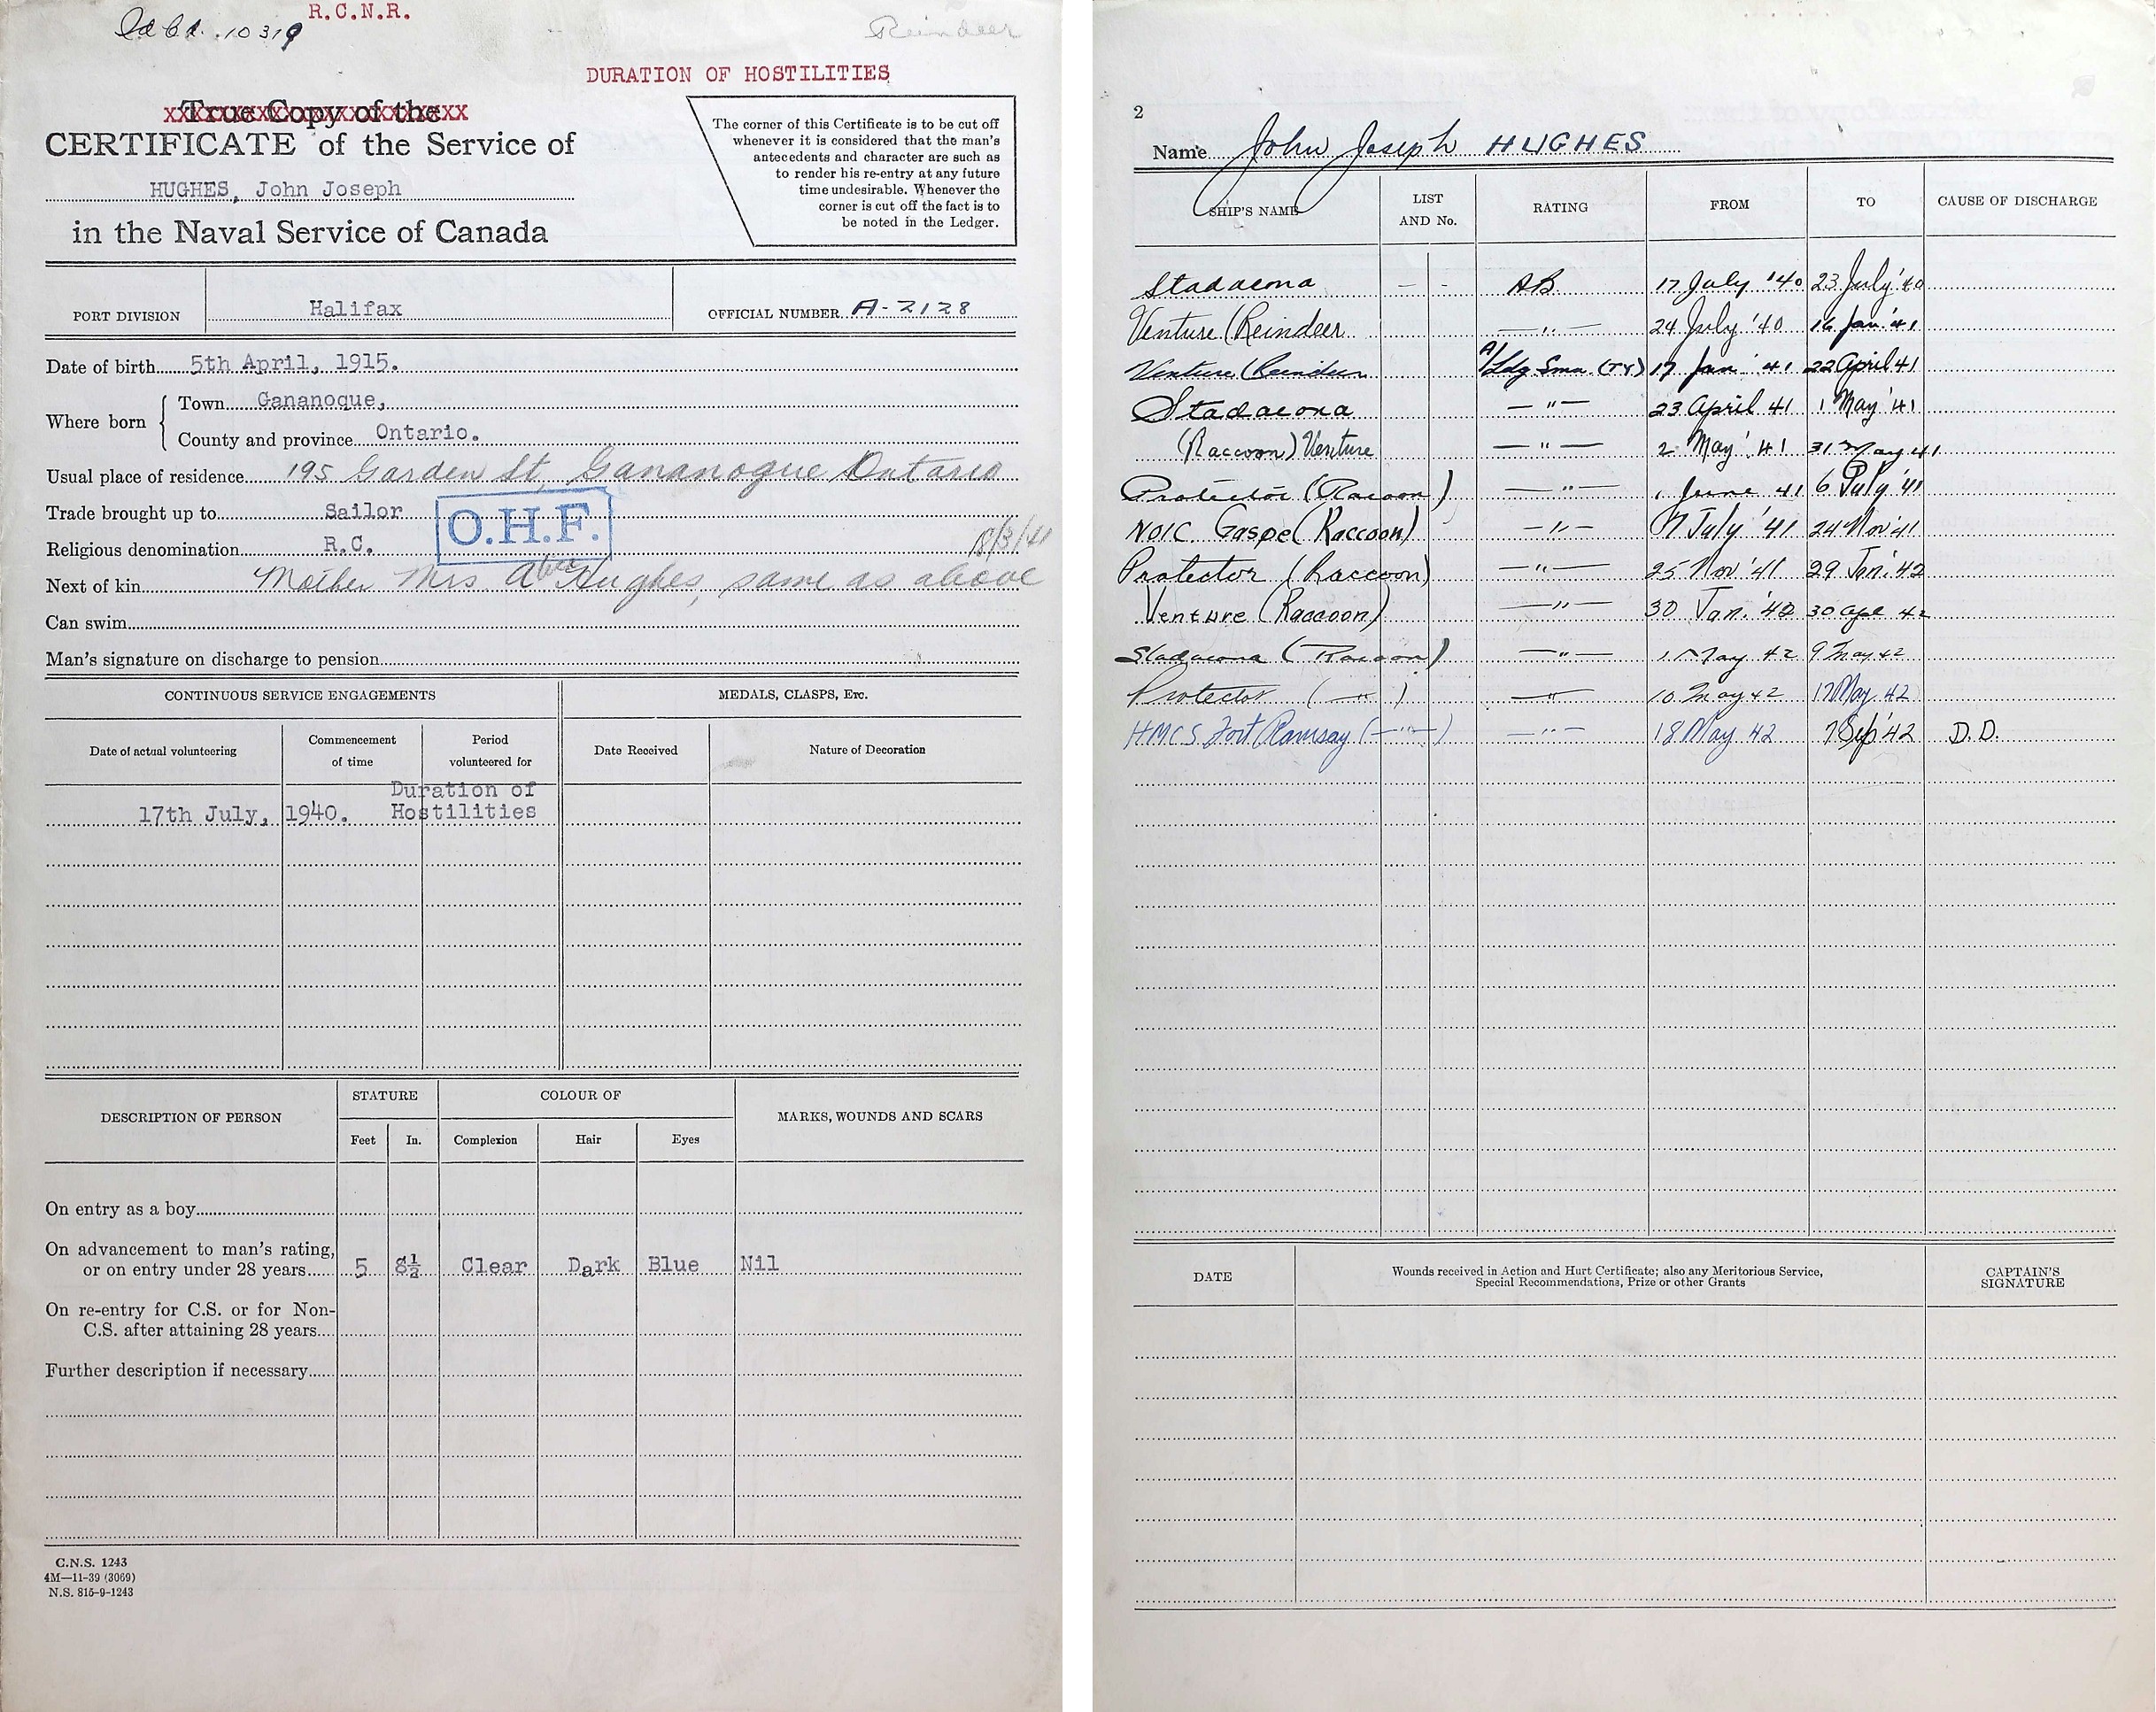 R.C.N.R.
Id Cd. 10319
Reindeer
DURATION OF HOSTILITIES
True Copy of the
CERTIFICATE of the Service of
HUGHES, John Joseph
in the Naval Service of Canada
The corner of this Certificate is to be cut off
whenever it is considered that the man's
antecedents and character are such as
to render his re-entry at any future
time undesirable. Whenever the
corner is cut off the fact is to
be noted in the Ledger.
PORT DIVISION Halifax OFFICIAL NUMBER A-2128
Date of birth 5th April, 1915.
Where born Town Gananoque,
County and province Ontario.
Usual place of residence 195 Garden St, Gananoque Ontario
Trade brought up to Sailor
O.H.F.
Religious denomination R.C. 18/3/41
Next of kin Mother Mrs. Hughes, same as above
Can swim
Man's signature on discharge to pension
CONTINUOUS SERVICE ENGAGEMENTS MEDALS, CLASPS, Etc.
Date of actual volunteering Commencement of time Period volunteered for Date Received Nature of Decoration
Duration of
17th July, 1940. Hostilities
DESCRIPTION OF PERSON STATURE COLOUR OF MARKS, WOUNDS AND SCARS
Feet In. Complexion Hair Eyes
On entry as a boy
On advancement to man's rating,
or on entry under 28 years 5 8½ Clear Dark Blue Nil
On re-entry for C.S. or for Non-
C.S. after attaining 28 years
Further description if necessary
C.N.S. 1243
4M—11-39 (3069)
N.S. 815-9-1243
2
Name John Joseph HUGHES
SHIP'S NAME LIST AND No. RATING FROM TO CAUSE OF DISCHARGE
Stadacona - - AB 17 July '40 23 July '40
Venture (Reindeer —"— 24 July '40 16 Jan '41
Venture (Reindeer A/Ldg Smn (Ty) 17 Jan '41 22 April 41
Stadacona —"— 23 April 41 1 May '41
(Raccoon) Venture —"— 2 May '41 31 May 41
Protector (Racoon) —"— 1 June 41 6 July '41
NOIC Gaspe (Raccoon) —"— 7 July '41 24 Nov '41
Protector (Raccoon) —"— 25 Nov '41 29 Jan. '42
Venture (Raccoon) —"— 30 Jan. '42 30 Apl 42
Stadacona (Racoon) —"— 1 May 42 9 May 42
Protector (—"—) —"— 10 May 42 17 May 42
HMCS Fort Ramsay (—"—) —"— 18 May 42 7 Sep '42 D.D.
DATE Wounds received in Action and Hurt Certificate; also any Meritorious Service, CAPTAIN'S
Special Recommendations, Prize or other Grants SIGNATURE